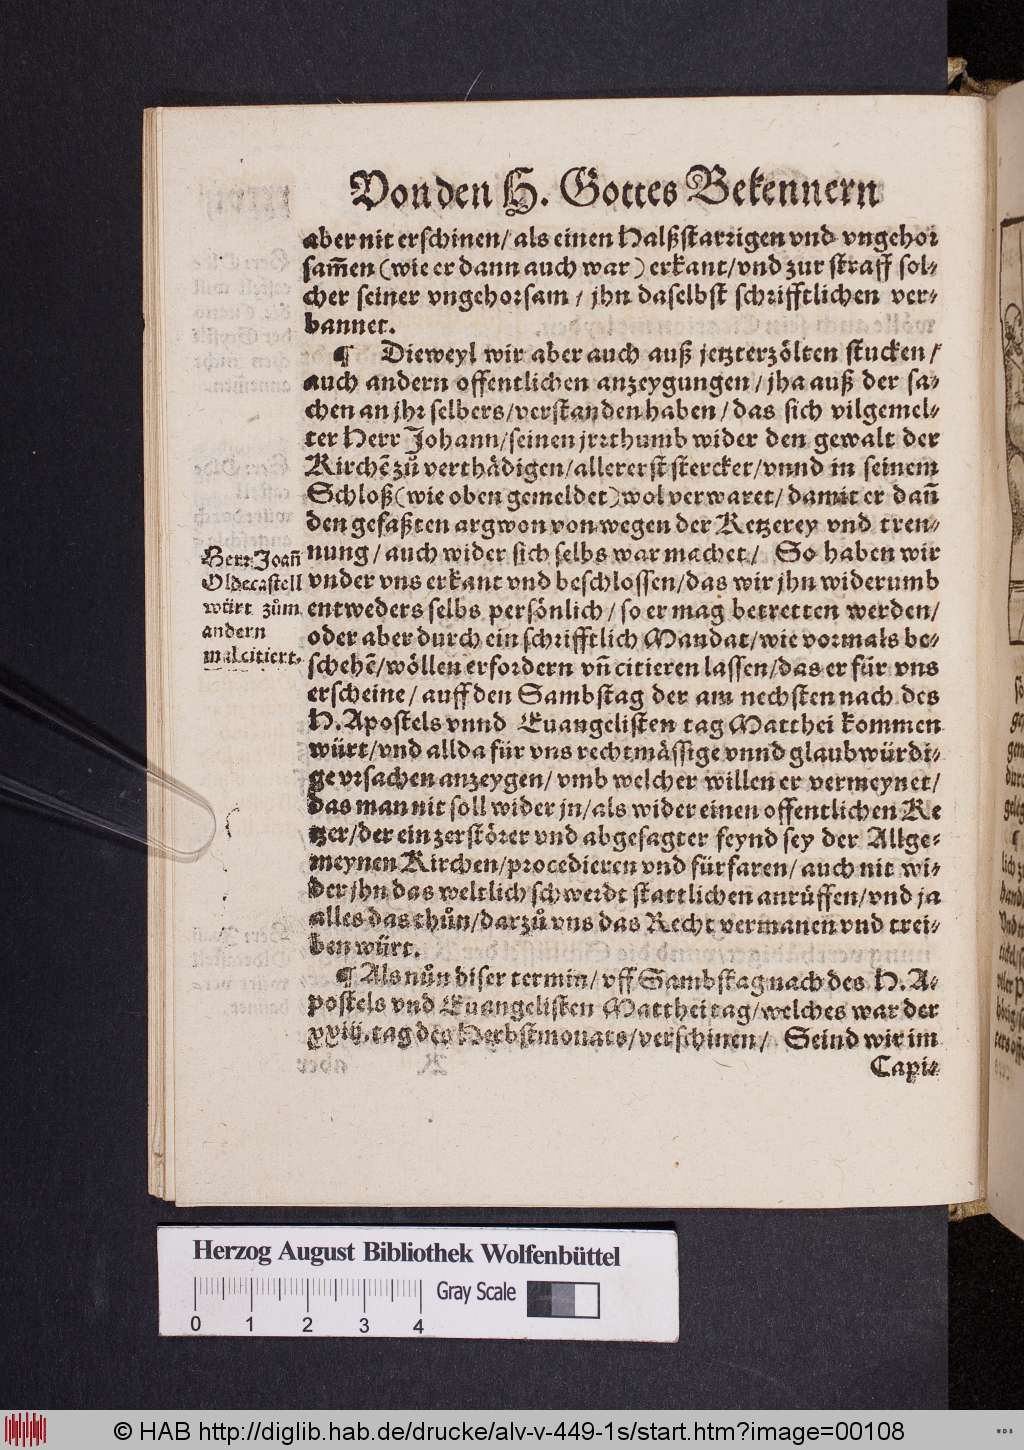 Von den H. Gottes Bekennern
aber nit erschinen/ als einen Halßstarrigen vnd vngehor
sam̃en (wie er dann auch war) erkant/vnd zur straff sol-
cher seiner vngehorsam/ jhn daselbst schrifftlichen ver-
bannet.
¶ Dieweyl wir aber auch auß jetzterzölten stucken/
auch andern offentlichen anzeygungen/ jha auß der sa-
chen an jhr selbers/verstanden haben/ das sich vilgemel-
ter Herr Johann/seinen jrrthumb wider den gewalt der
Kirchẽ zů verthådigen/allererst stercket/vnnd in seinem
Schloß (wie oben gemeldet) wol verwaret/ damit er dañ
den gefaßten argwon von wegen der Ketzerey vnd tren-
nung/ auch wider sich selbs war machet/ So haben wir
Herr Joañ
Oldecastell
würt zům
andern
mal citiert.
vnder vns erkant vnd beschlossen/das wir jhn widerumb
entweders selbs persönlich/ so er mag betretten werden/
oder aber durch ein schrifftlich Mandat/wie vormals be-
schehẽ/wöllen erfordern vñ citieren lassen/das er für vns
erscheine/ auff den Sambstag der am nechsten nach des
H. Apostels vnnd Euangelisten tag Matthei kommen
würt/vnd allda für vns rechtmässige vnnd glaubwürdi-
ge vrsachen anzeygen/ vmb welcher willen er vermeynet/
das man nit soll wider jn/als wider einen offentlichen Ke
tzer/der ein zerstörer vnd abgesagter feynd sey der Allge-
meynen Kirchen/procedieren vnd fürfaren/ auch nit wi-
der jhn das weltlich schwerdt stattlichen anrüffen/vnd ja
alles das thůn/darzů vns das Recht vermanen vnd trei-
ben würt.
¶ Als nůn diser termin/ vff Sambstag nach des H. A-
postels vnd Euangelisten Matthei tag/welches war der
xxiij. tag des Herbstmonats/verschinen/ Seind wir im
Capi-
Herzog August Bibliothek Wolfenbüttel
Gray Scale
0 1 2 3 4
© HAB http://diglib.hab.de/drucke/alv-v-449-1s/start.htm?image=00108